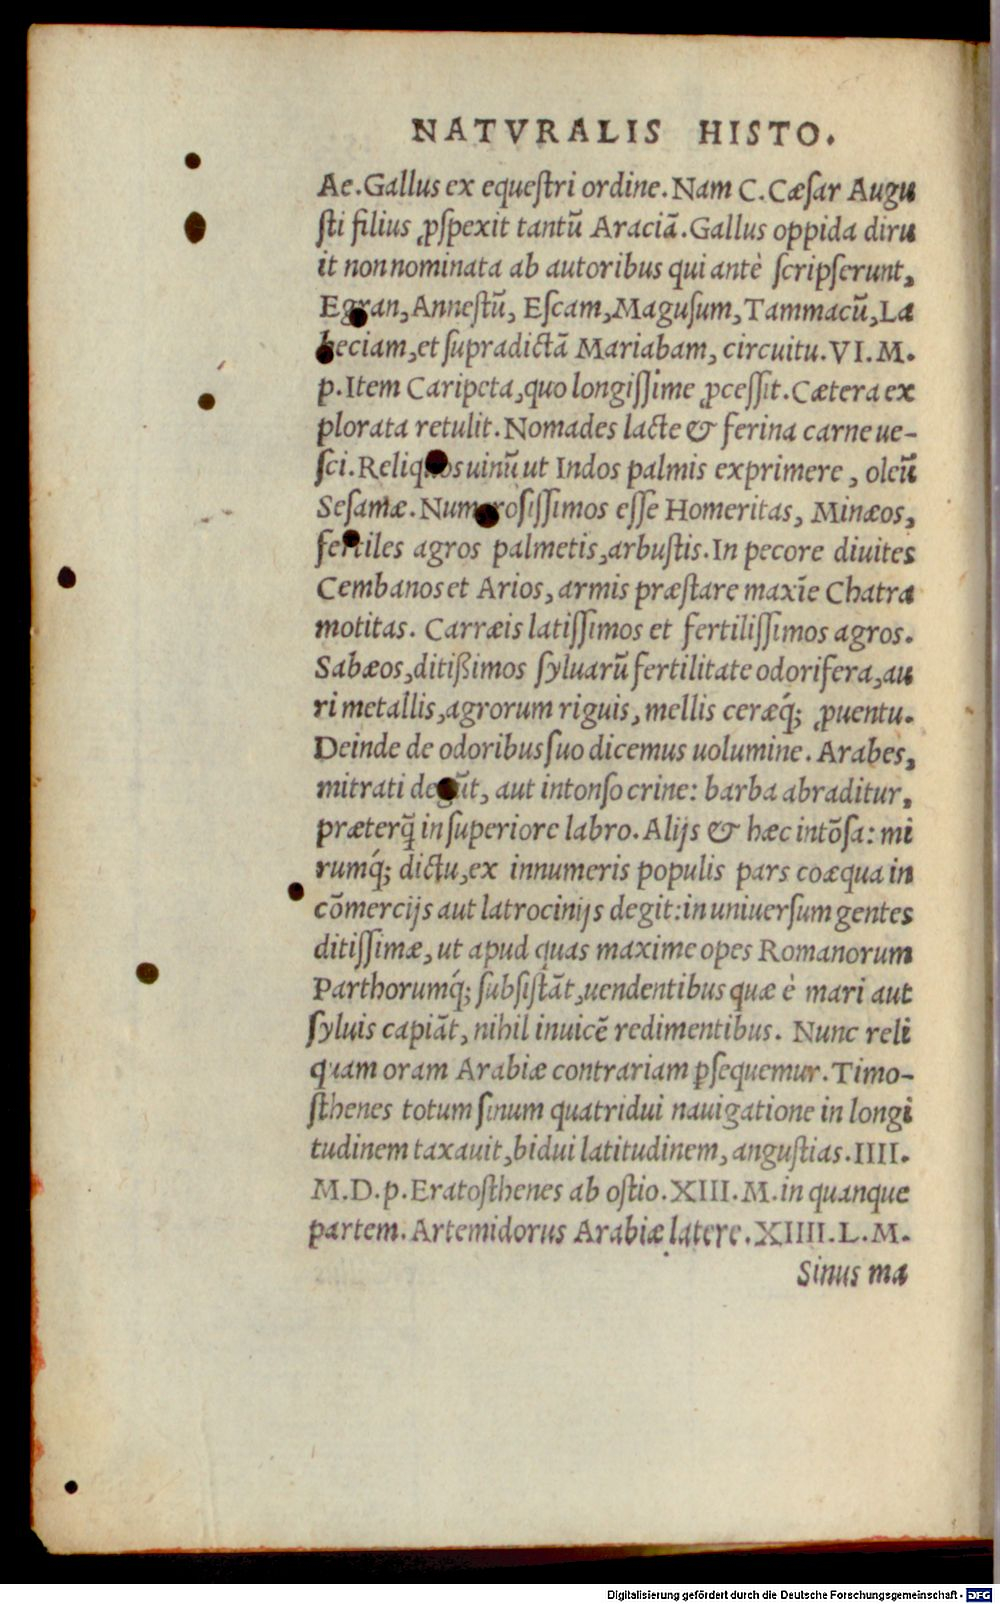 NATVRALIS HISTO.
Ae. Gallus ex equeſtri ordine. Nam C. Cæſar Augu
ſti filius ꝓſpexit tantū Araciā. Gallus oppida diru
it non nominata ab autoribus qui antè ſcripſerunt,
Egran, Anneſtū, Eſcam, Maguſum, Tammacū, La
beciam, et ſupradictā Mariabam, circuitu. VI. M.
p. Item Caripeta, quo longiſſime ꝓceſſit. Cætera ex
plorata retulit. Nomades lacte & ferina carne ue-
ſci. Reliquos uinū ut Indos palmis exprimere, oleū
Seſamæ. Numeroſiſſimos eſſe Homeritas, Minæos,
fertiles agros palmetis, arbuſtis. In pecore diuites
Cembanos et Arios, armis præſtare maxīe Chatra
motitas. Carræis latiſſimos et fertiliſſimos agros.
Sabæos, ditißimos ſyluarū fertilitate odorifera, au
ri metallis, agrorum riguis, mellis ceræq́; ꝓuentu.
Deinde de odoribus ſuo dicemus uolumine. Arabes,
mitrati degūt, aut intonſo crine: barba abraditur,
præterq̃ in ſuperiore labro. Alijs & hæc intōſa: mi
rumq́; dictu, ex innumeris populis pars coæqua in
cōmercijs aut latrocinijs degit: in uniuerſum gentes
ditiſſimæ, ut apud quas maxime opes Romanorum
Parthorumq́; ſubſiſtāt, uendentibus quæ è mari aut
ſyluis capiāt, nihil inuicē redimentibus. Nunc reli
quam oram Arabiæ contrariam ꝑſequemur. Timo-
ſthenes totum ſinum quatridui nauigatione in longi
tudinem taxauit, bidui latitudinem, anguſtias. IIII.
M. D. p. Eratoſthenes ab oſtio. XIII. M. in quanque
partem. Artemidorus Arabiæ latere. XIIII. L. M.
Sinus ma
Digitalisierung gefördert durch die Deutsche Forschungsgemeinschaft - DFG